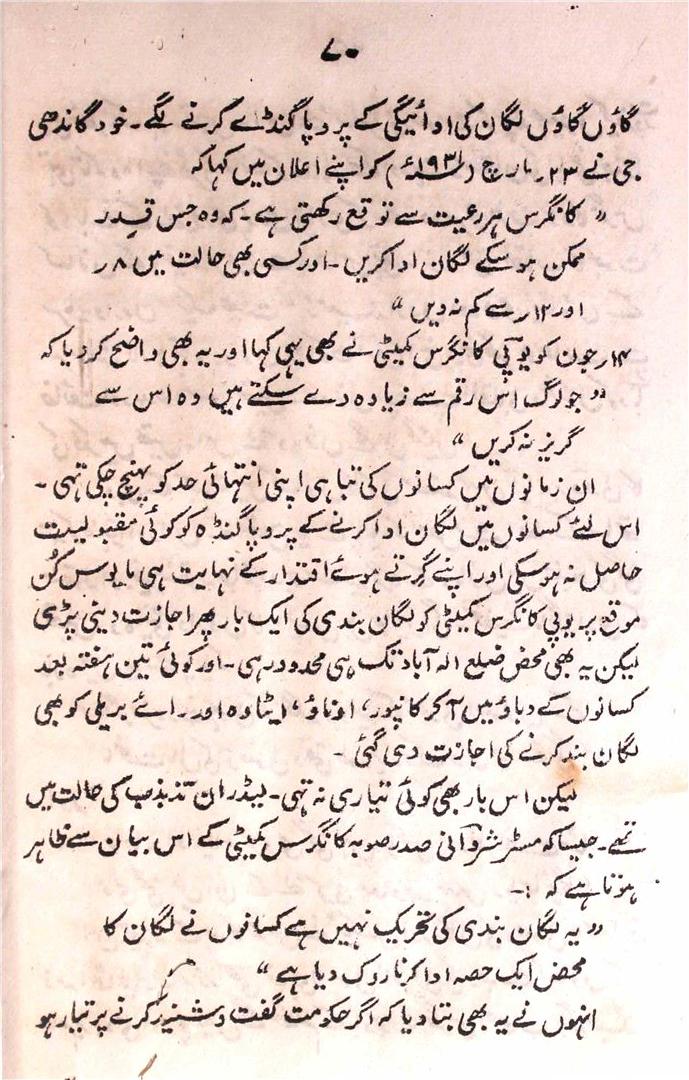 ۷۰
گاؤں گاؤں لگان کی ادائیگی کے پروپاگنڈے کرنے لگے۔ خود گاندھی
جی نے ۲۳۔ مارچ (۱۹۳۱ء) کو اپنے اعلان میں کہا کہ
" کانگرس ہر رعیت سے توقع رکھتی ہے۔ کہ وہ جس قدر
ممکن ہو سکے لگان ادا کریں۔ اور کسی بھی حالت میں ۸ ر
اور ۱۲ ر سے کم نہ دیں "
۱۴ر جون کو یوپی کانگرس کمیٹی نے بھی یہی کہا اور یہ بھی واضح کر دیا کہ
" جو لوگ اس رقم سے زیادہ دے سکتے ہیں وہ اس سے
گریز نہ کریں "
ان زمانوں میں کسانوں کی تباہی اپنی انتہائی حد کو پہنچ چکی تہی ۔
اس لئے کسانوں میں لگان ادا کرنے کے پروپاگنڈہ کو کوئی مقبولیت
حاصل نہ ہو سکی اور اپنے گرتے ہوئے اقتدار کے نہایت ہی مایوس کُن
موقع پر یوپی کانگرس کمیٹی کو لگان بندی کی ایک بار پھر اجازت دینی پڑی
لیکن یہ بھی محض ضلع الہ آباد تک ہی محدود رہی ۔ اور کوئی تین ہفتہ بعد
کسانوں کے دباؤ میں آ کر کانپور، اوناؤ، ایٹاوہ اور رائے بریلی کو بھی
لگان بند کرنے کی اجازت دی گئی ۔
لیکن اس بار بھی کوئی تیاری نہ تہی ۔ لیڈران تذبذب کی حالت میں
تھے ۔ جیسا کہ مسٹر شروانی صدر صوبہ کانگرس کمیٹی کے اس بیان سے ظاہر
ہوتا ہے کہ :۔
" یہ لگان بندی کی تحریک نہیں ہے کسانوں نے لگان کا
محض ایک حصہ ادا کرنا روک دیا ہے "
انہوں نے یہ بھی بتا دیا کہ اگر حکومت گفت و شنید کرنے پر تیار ہو